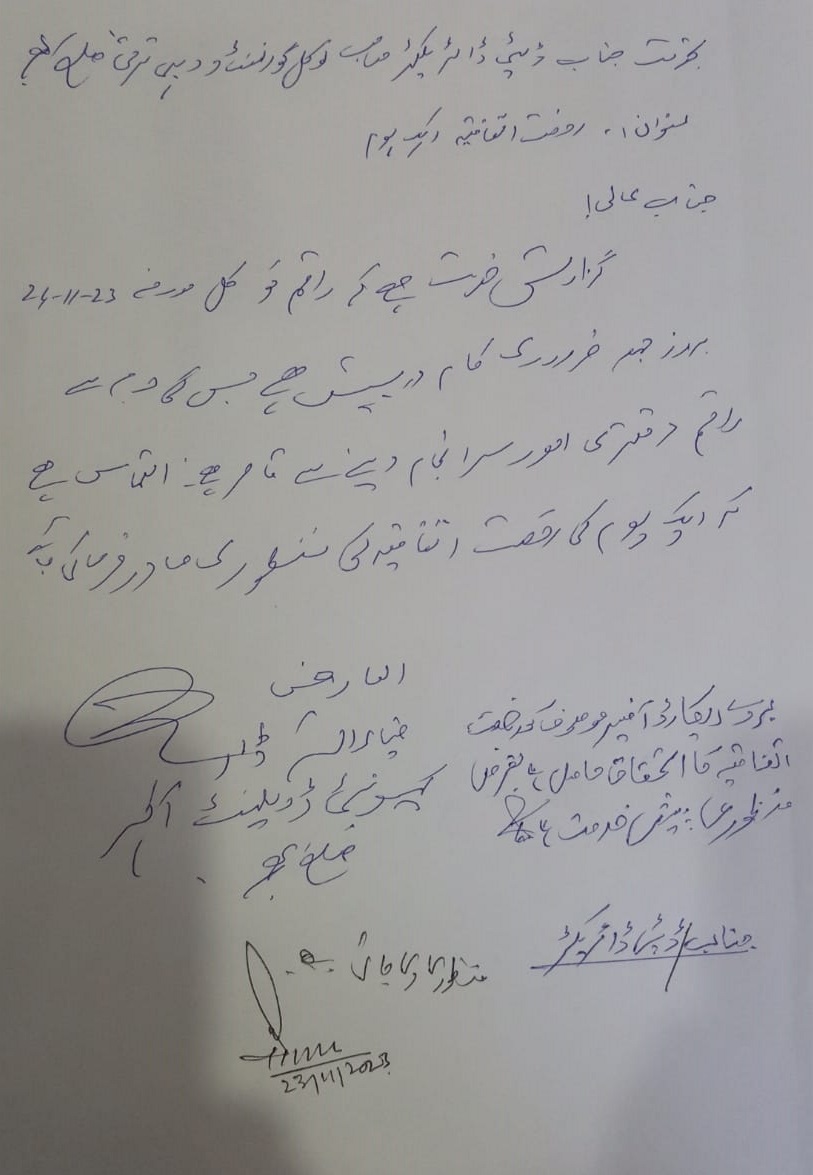 بخدمت جناب ڈپٹی ڈائریکٹر صاحب لوکل گورنمنٹ و دیہی ترقی ضلع
عنوان:۔ رخصت اتفاقیہ ایک یوم
جناب عالی!
گزارش خدمت ہے کہ راقم کو کل مورخہ 24-11-23
بروز جمعہ ضروری کام درپیش ہے جس کی وجہ سے
راقم دفتری امور سرانجام دینے سے قاصر ہے۔ التماس ہے
کہ ایک یوم کی رخصت اتفاقیہ کی منظوری صادر فرمائی جائے
العارض
ضیاء
کمیونٹی ڈویلپمنٹ آفیسر
ضلع
بروئے ریکارڈ آفیسر موصوف کو رخصت
اتفاقیہ کا استحقاق حاصل ہے بغرض
منظوری پیش خدمت ہے
جناب ڈپٹی ڈائریکٹر
منظوری دی جاتی ہے۔
23/11/2023